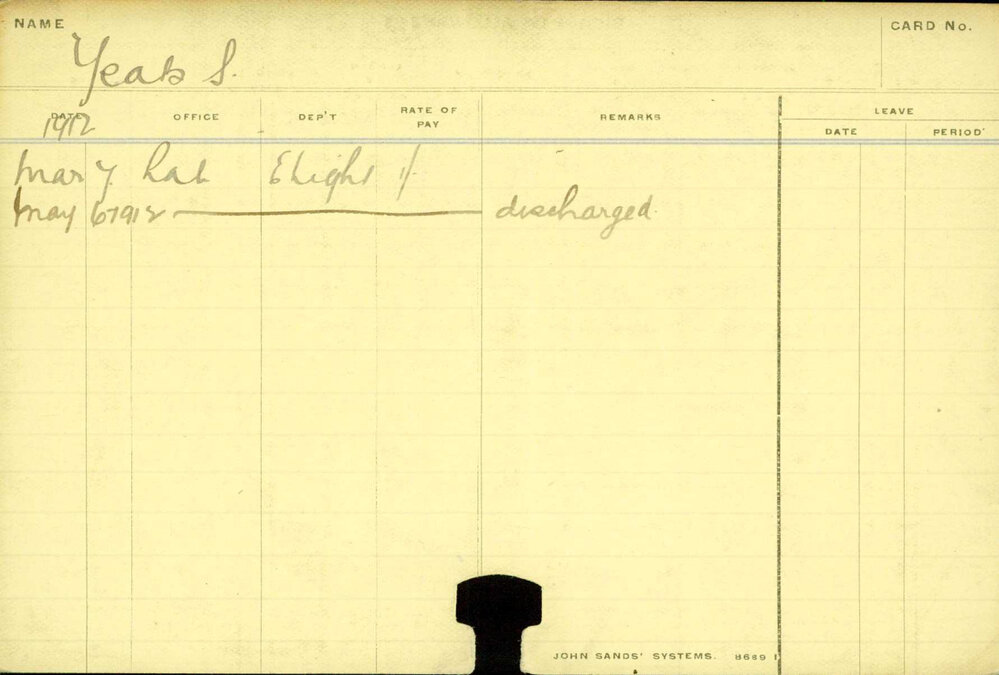 NAME
CARD No.
Yeats S.
DATE OFFICE DEP'T RATE OF PAY REMARKS LEAVE
DATE PERIOD
1912
Mar 7 Lab Elight 1/
May 6 1912 discharged
JOHN SANDS' SYSTEMS. 8689